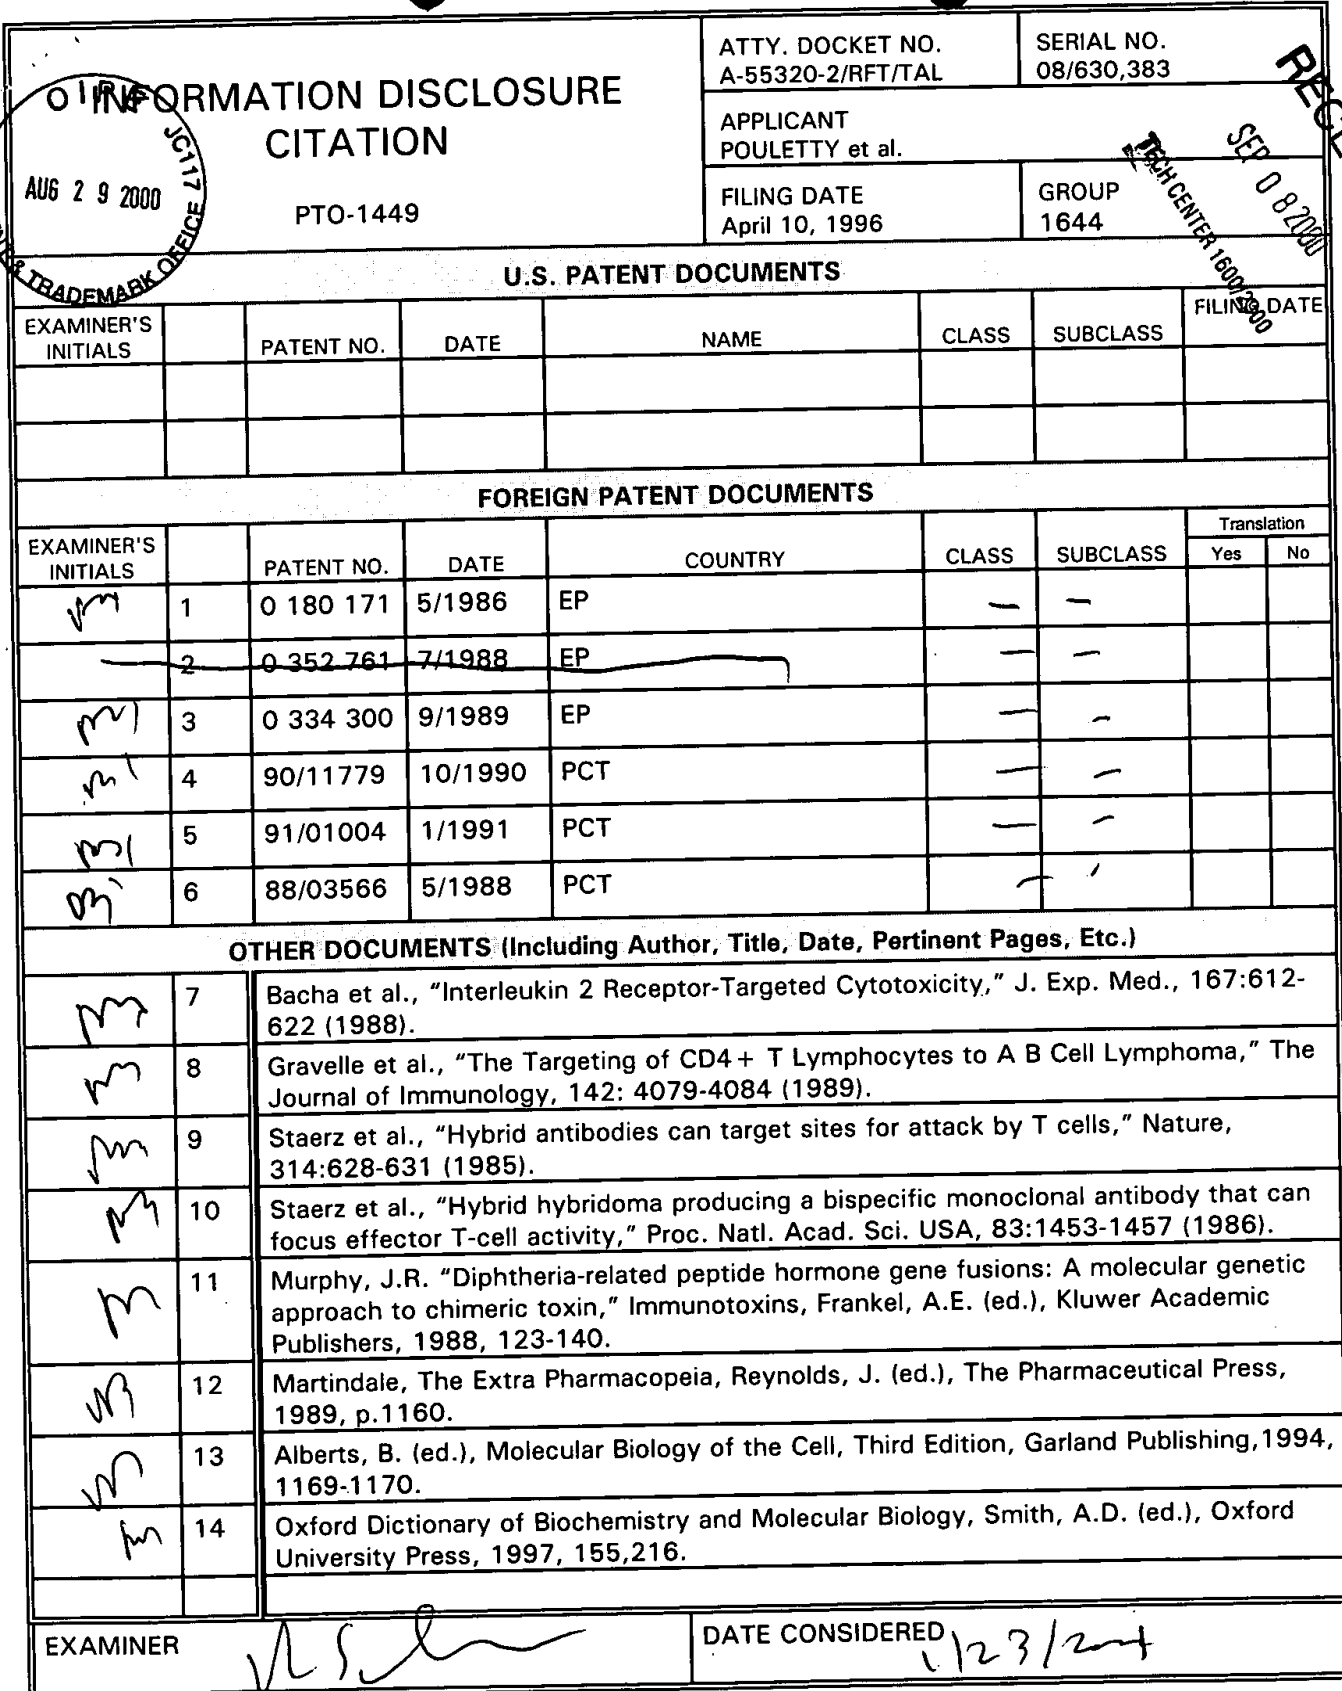 INFORMATION DISCLOSURE
CITATION
PTO-1449
ATTY. DOCKET NO.
A-55320-2/RFT/TAL
SERIAL NO.
08/630,383
APPLICANT
POULETTY et al.
FILING DATE
April 10, 1996
GROUP
1644
O I P E
JC117
AUG 2 9 2000
& TRADEMARK OFFICE
SEP 0 8 2000
TECH CENTER 1600/2900
U.S. PATENT DOCUMENTS
EXAMINER'S INITIALS PATENT NO. DATE NAME CLASS SUBCLASS FILING DATE
FOREIGN PATENT DOCUMENTS
EXAMINER'S INITIALS PATENT NO. DATE COUNTRY CLASS SUBCLASS Translation Yes No
1 0 180 171 5/1986 EP — —
2 0 352 761 7/1988 EP — —
3 0 334 300 9/1989 EP — —
4 90/11779 10/1990 PCT — —
5 91/01004 1/1991 PCT — —
6 88/03566 5/1988 PCT — —
OTHER DOCUMENTS (Including Author, Title, Date, Pertinent Pages, Etc.)
7 Bacha et al., "Interleukin 2 Receptor-Targeted Cytotoxicity," J. Exp. Med., 167:612-
622 (1988).
8 Gravelle et al., "The Targeting of CD4+ T Lymphocytes to A B Cell Lymphoma," The
Journal of Immunology, 142: 4079-4084 (1989).
9 Staerz et al., "Hybrid antibodies can target sites for attack by T cells," Nature,
314:628-631 (1985).
10 Staerz et al., "Hybrid hybridoma producing a bispecific monoclonal antibody that can
focus effector T-cell activity," Proc. Natl. Acad. Sci. USA, 83:1453-1457 (1986).
11 Murphy, J.R. "Diphtheria-related peptide hormone gene fusions: A molecular genetic
approach to chimeric toxin," Immunotoxins, Frankel, A.E. (ed.), Kluwer Academic
Publishers, 1988, 123-140.
12 Martindale, The Extra Pharmacopeia, Reynolds, J. (ed.), The Pharmaceutical Press,
1989, p.1160.
13 Alberts, B. (ed.), Molecular Biology of the Cell, Third Edition, Garland Publishing,1994,
1169-1170.
14 Oxford Dictionary of Biochemistry and Molecular Biology, Smith, A.D. (ed.), Oxford
University Press, 1997, 155,216.
EXAMINER
DATE CONSIDERED